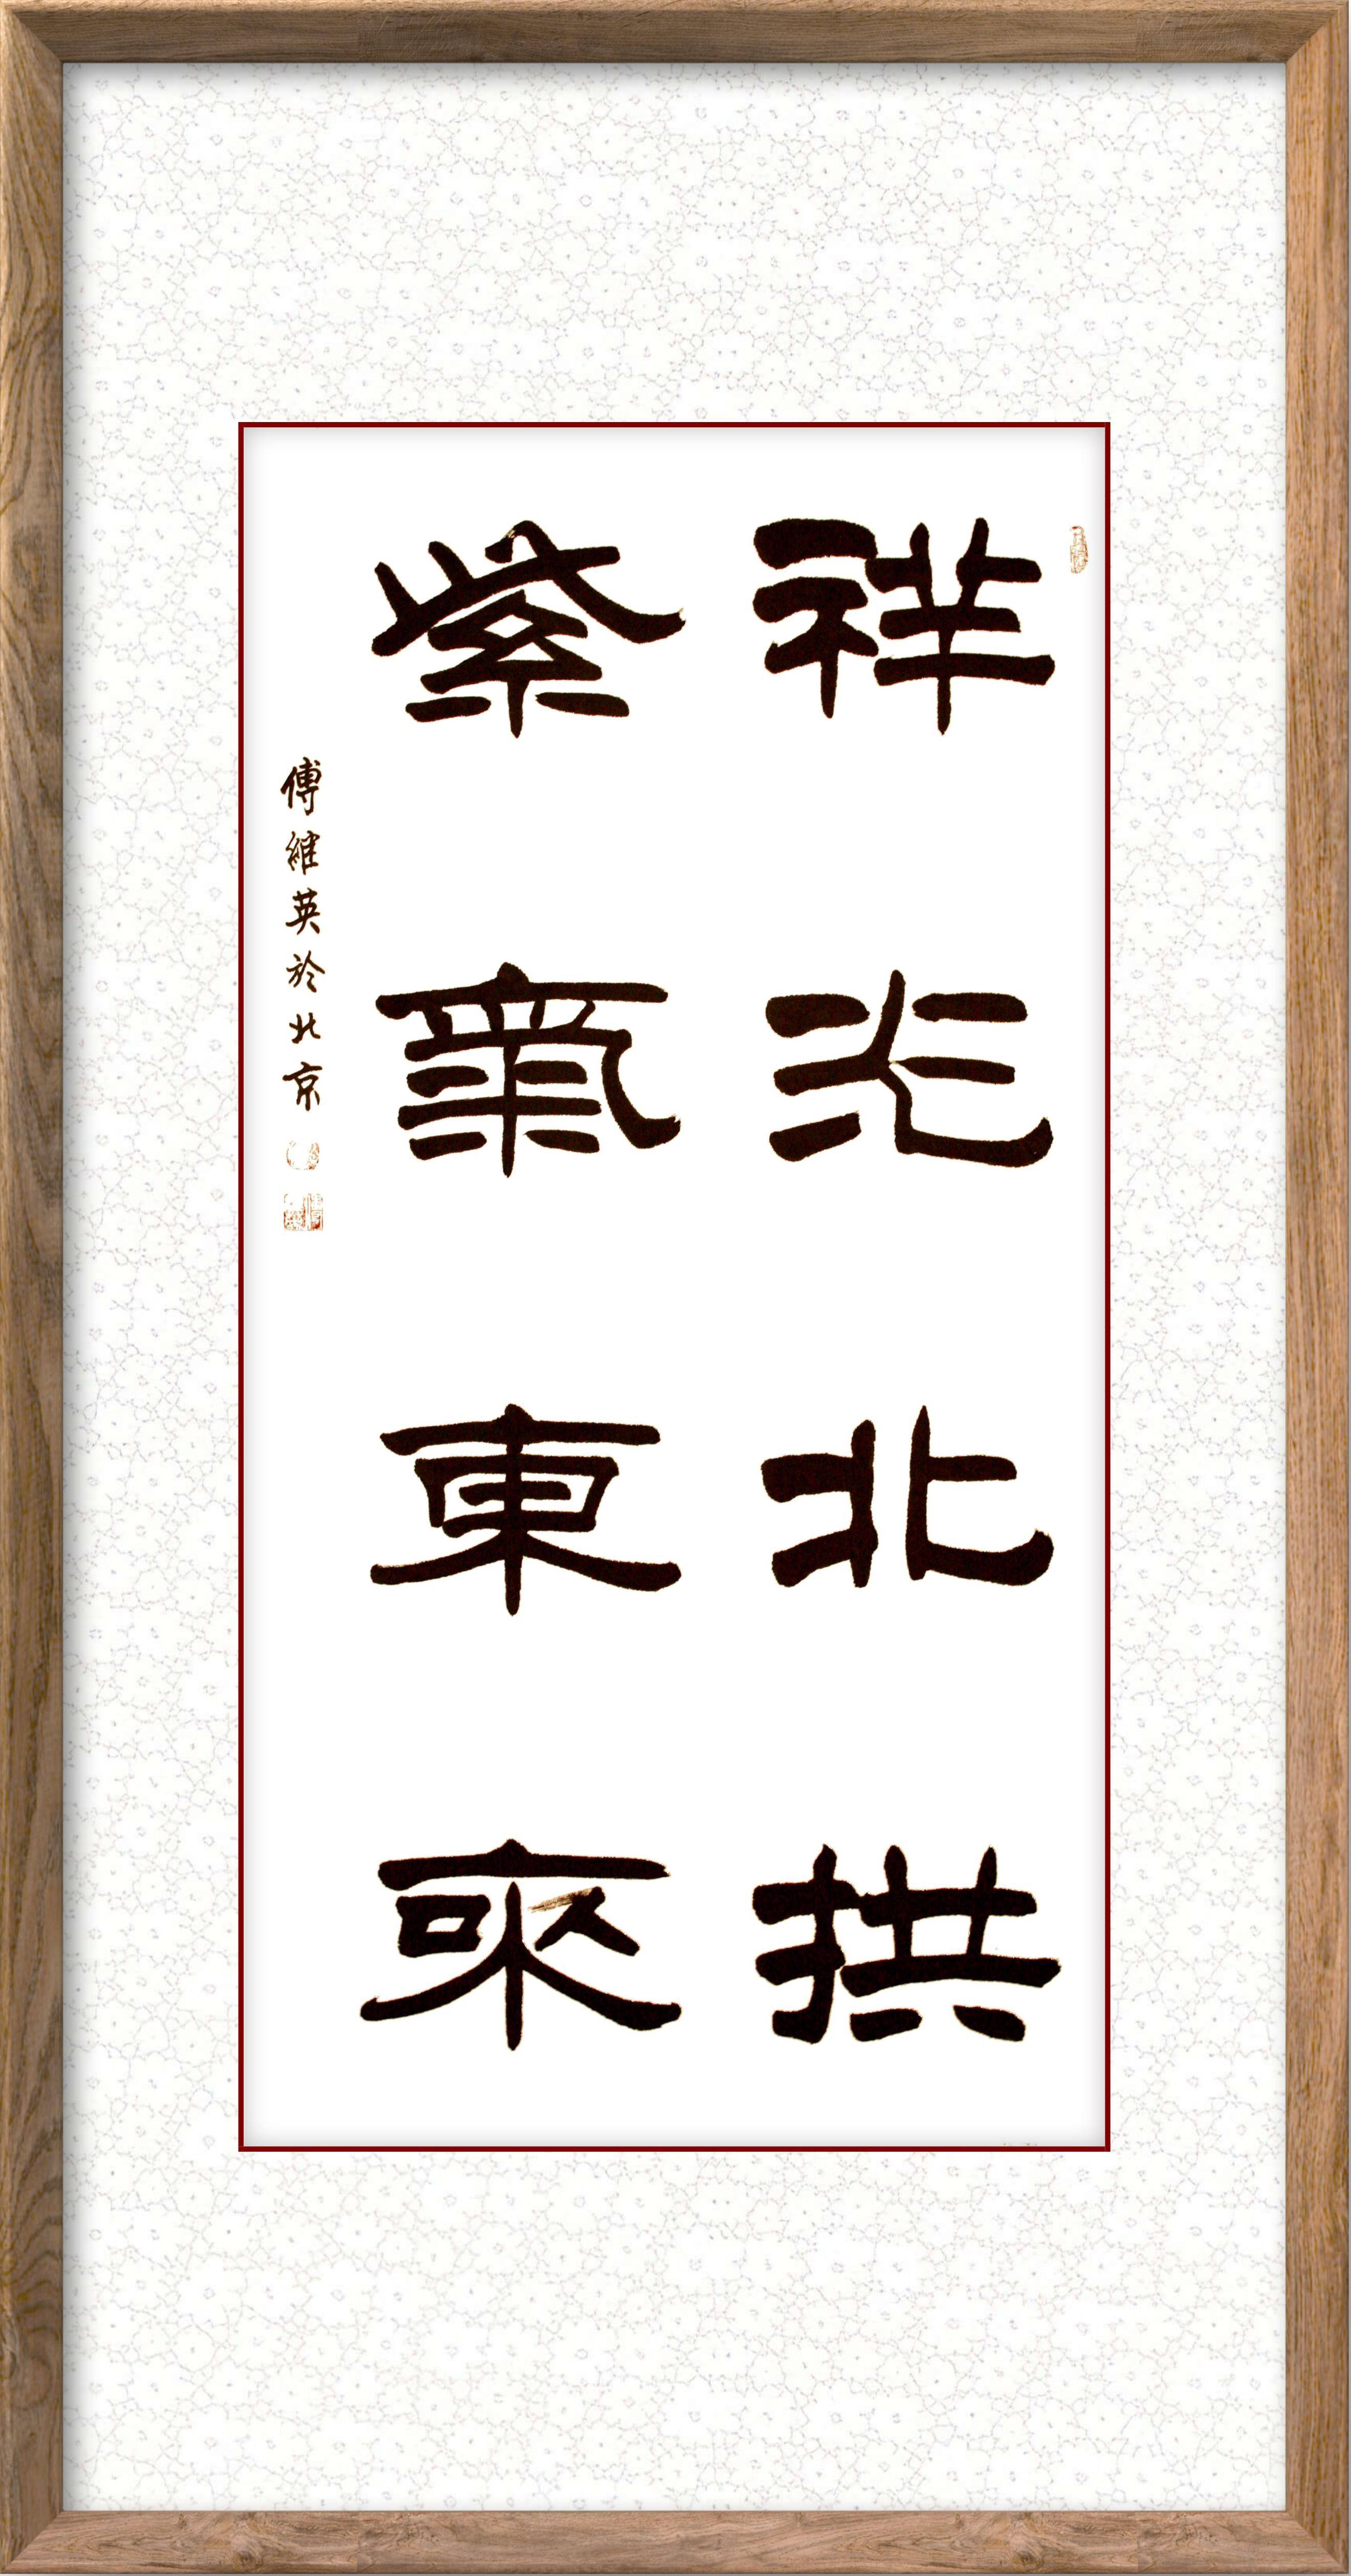 祥光北拱
紫氣東來
傅維英於北京